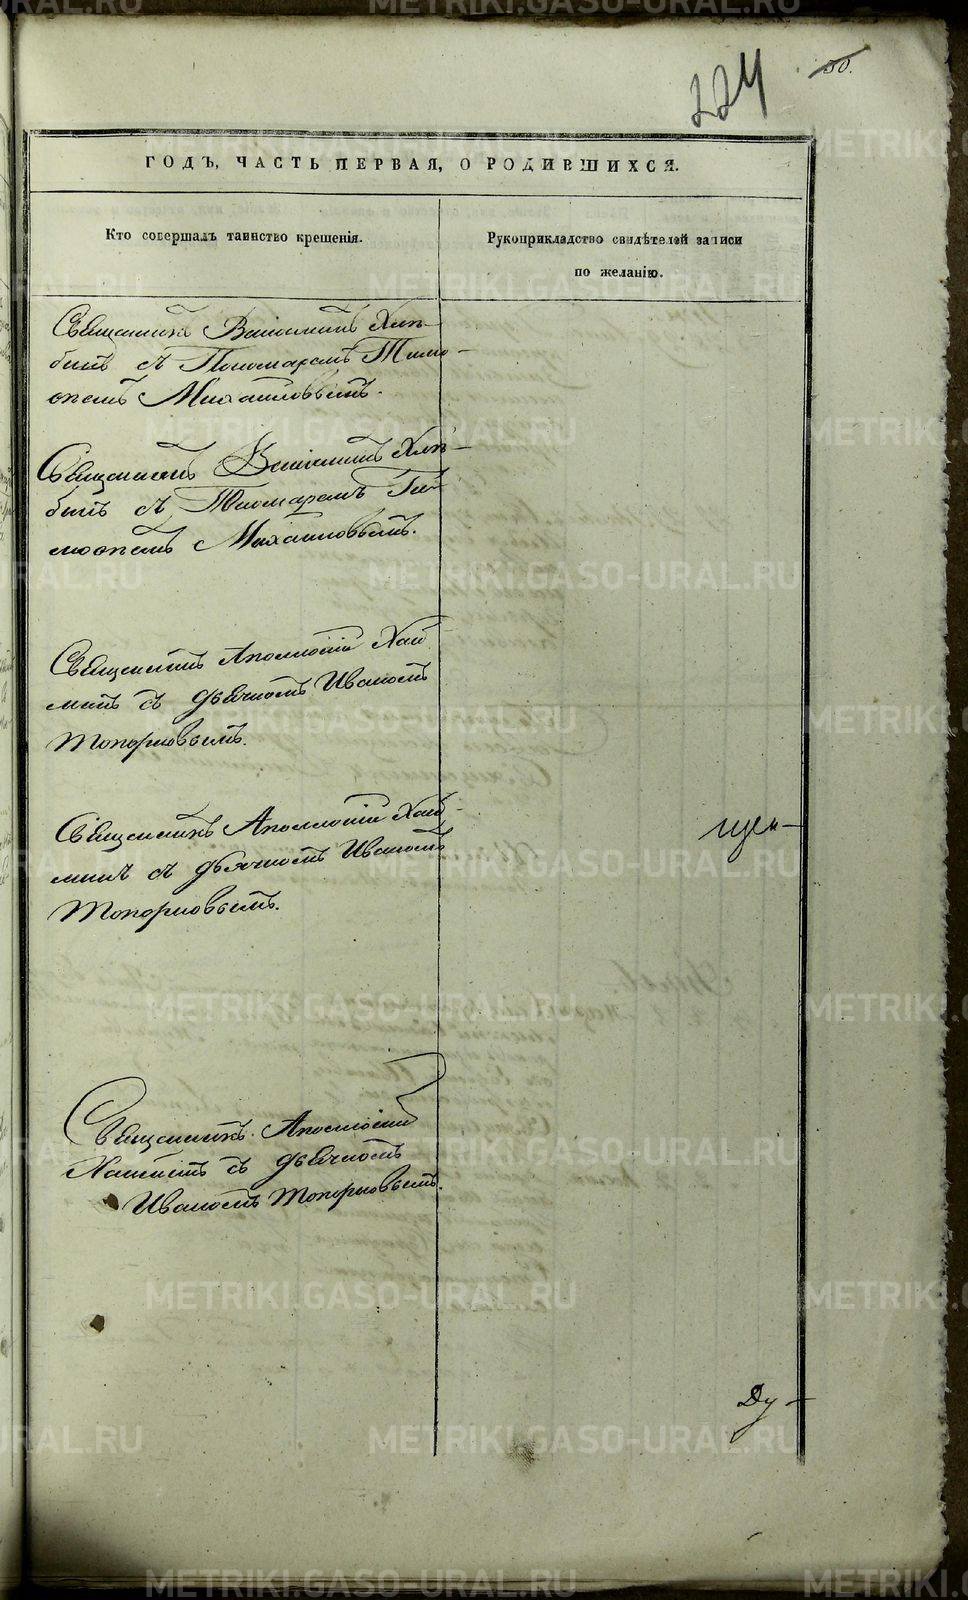 224
50.
ГОДЪ, ЧАСТЬ ПЕРВАЯ, О РОДИВШИХСЯ.
Кто совершалъ таинство крещенія.
Рукоприкладство свидѣтелей записи
по желанію.
Священникъ Веніаминъ Хлѣ-
бинъ съ Пономаремъ Тимо-
ѳеемъ Михайловымъ.
Священникъ Веніаминъ Хлѣ-
бинъ съ Пономаремъ Ти-
моѳеемъ Михайловымъ.
Священникъ Аполлоній
съ дьячкомъ Иваномъ
Топорковымъ.
Священникъ Аполлоній
съ дьячкомъ Иваномъ
Топорковымъ.
щен-
Священникъ Аполлоній
съ дьячкомъ
Иваномъ Топорковымъ.
Ду-
METRIKI.GASO-URAL.RU